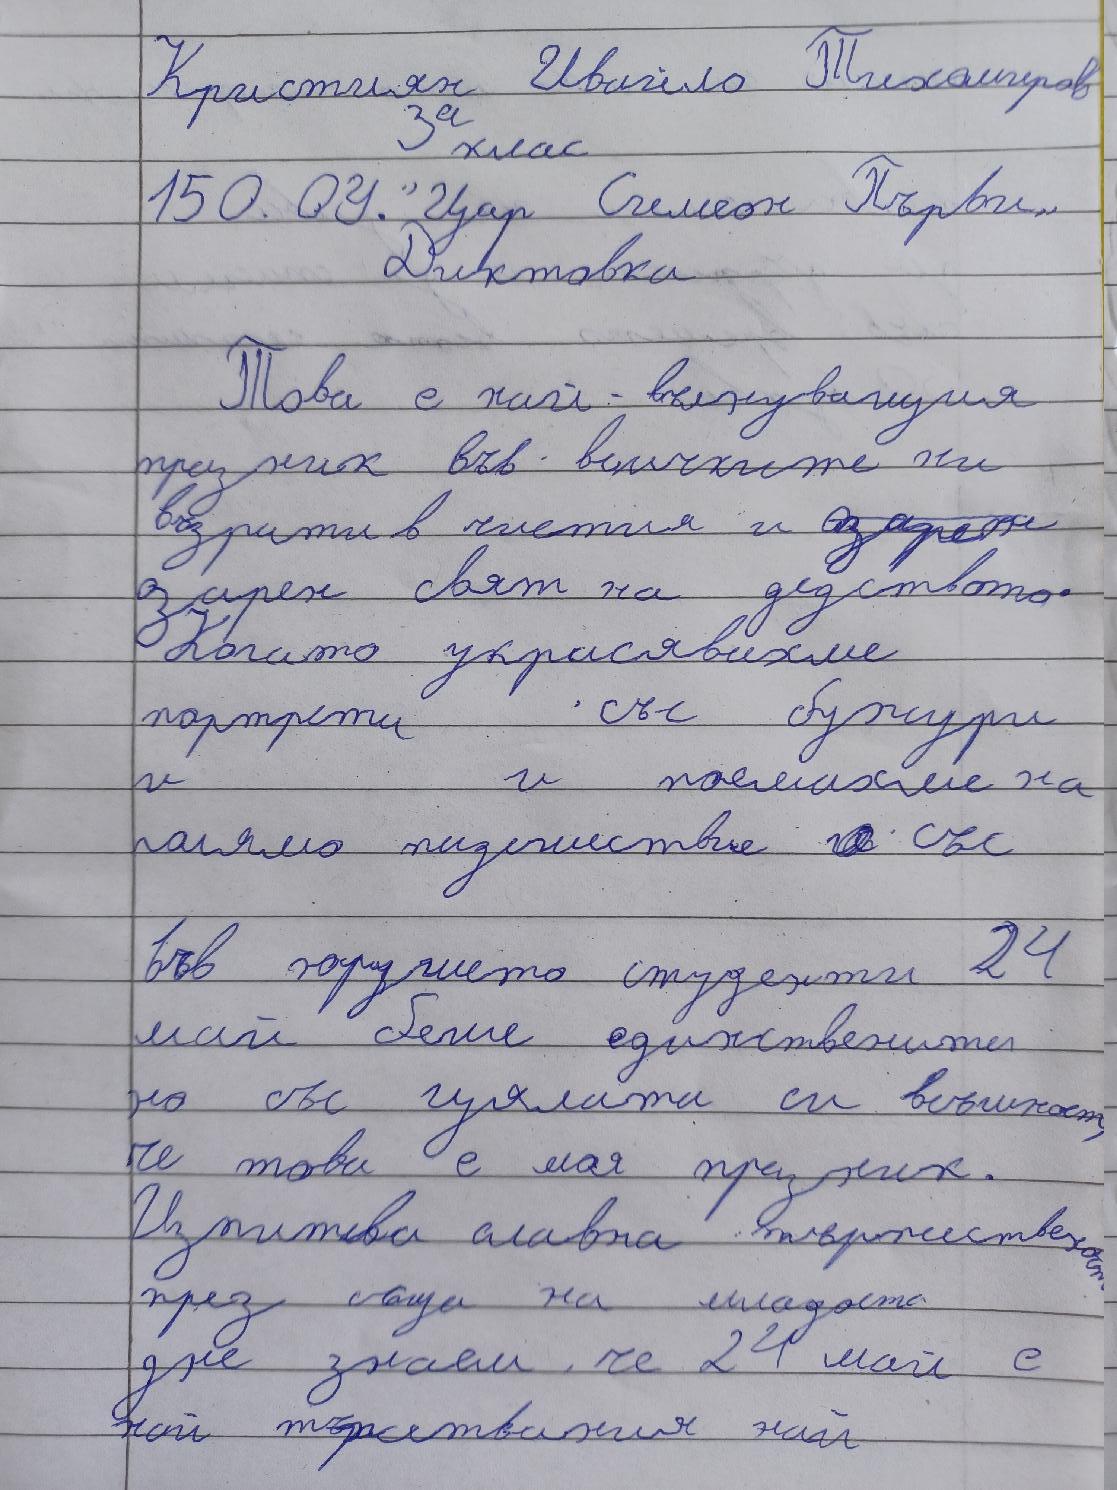 Кристиян Ивайло Тихомиров
3а клас
150. ОУ. "Цар Симеон Първи„
Диктовка
Това е най-вълнуващия
празник във всичките ни
възрати в чистия и
озарен свят на дедството.
Когато украсявахме
портрети със божури
и и поемахме на
голямо пизешествие със
във студенти 24
май беше единствените
но със цялата си всъшност,
че това е моя празник.
Изпитва славна тържественост
през на младоста
дне знаем, че 24 май е
най най